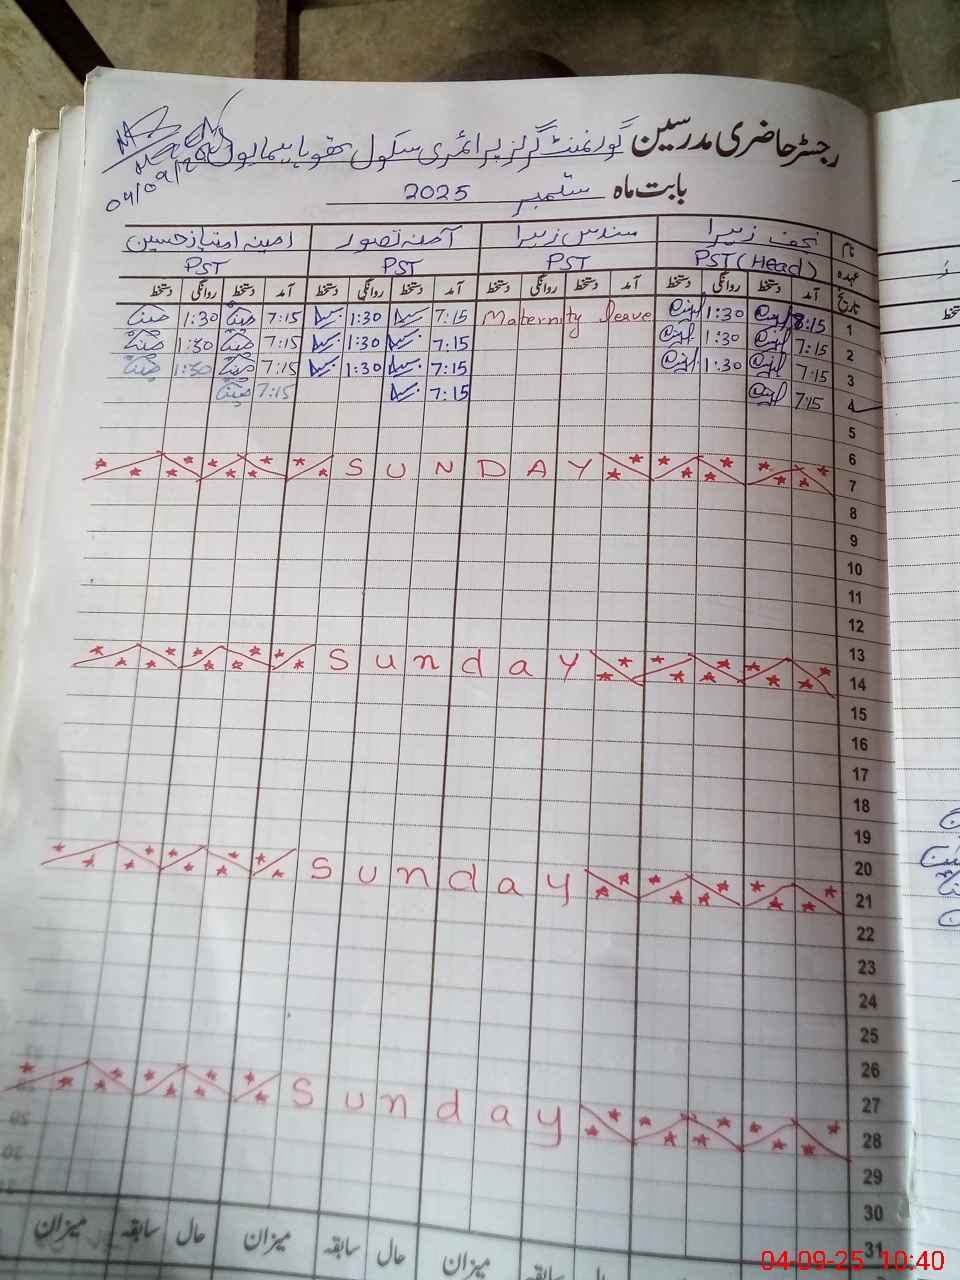 رجسٹر حاضری مدرسین گورنمنٹ گرلز پرائمری سکول
04/09/2025
بابت ماہ ستمبر 2025
نام نجف زہرا سندس زہرا آمنہ تصور امینہ امتیاز حسین
عہدہ PST (Head) PST PST PST
تاریخ آمد دستخط روانگی دستخط آمد دستخط روانگی دستخط آمد دستخط روانگی دستخط آمد دستخط روانگی دستخط
1 8:15 1:30 Maternity leave 7:15 1:30 7:15 1:30
2 7:15 1:30 7:15 1:30 7:15 1:30
3 7:15 1:30 7:15 1:30 7:15 1:30
4 7:15 7:15 7:15
5
6
7 SUNDAY
8
9
10
11
12
13
14 Sunday
15
16
17
18
19
20
21 Sunday
22
23
24
25
26
27
28 Sunday
29
30
31
حال سابقہ میزان حال سابقہ میزان حال سابقہ میزان
04-09-25 10:40